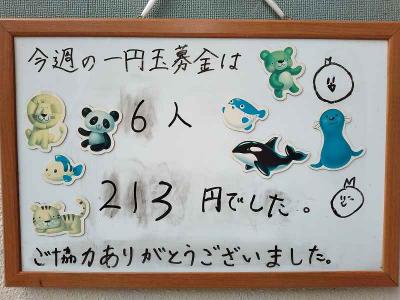 今週の一円玉募金は
6人
213円でした。
ご協力ありがとうございました。